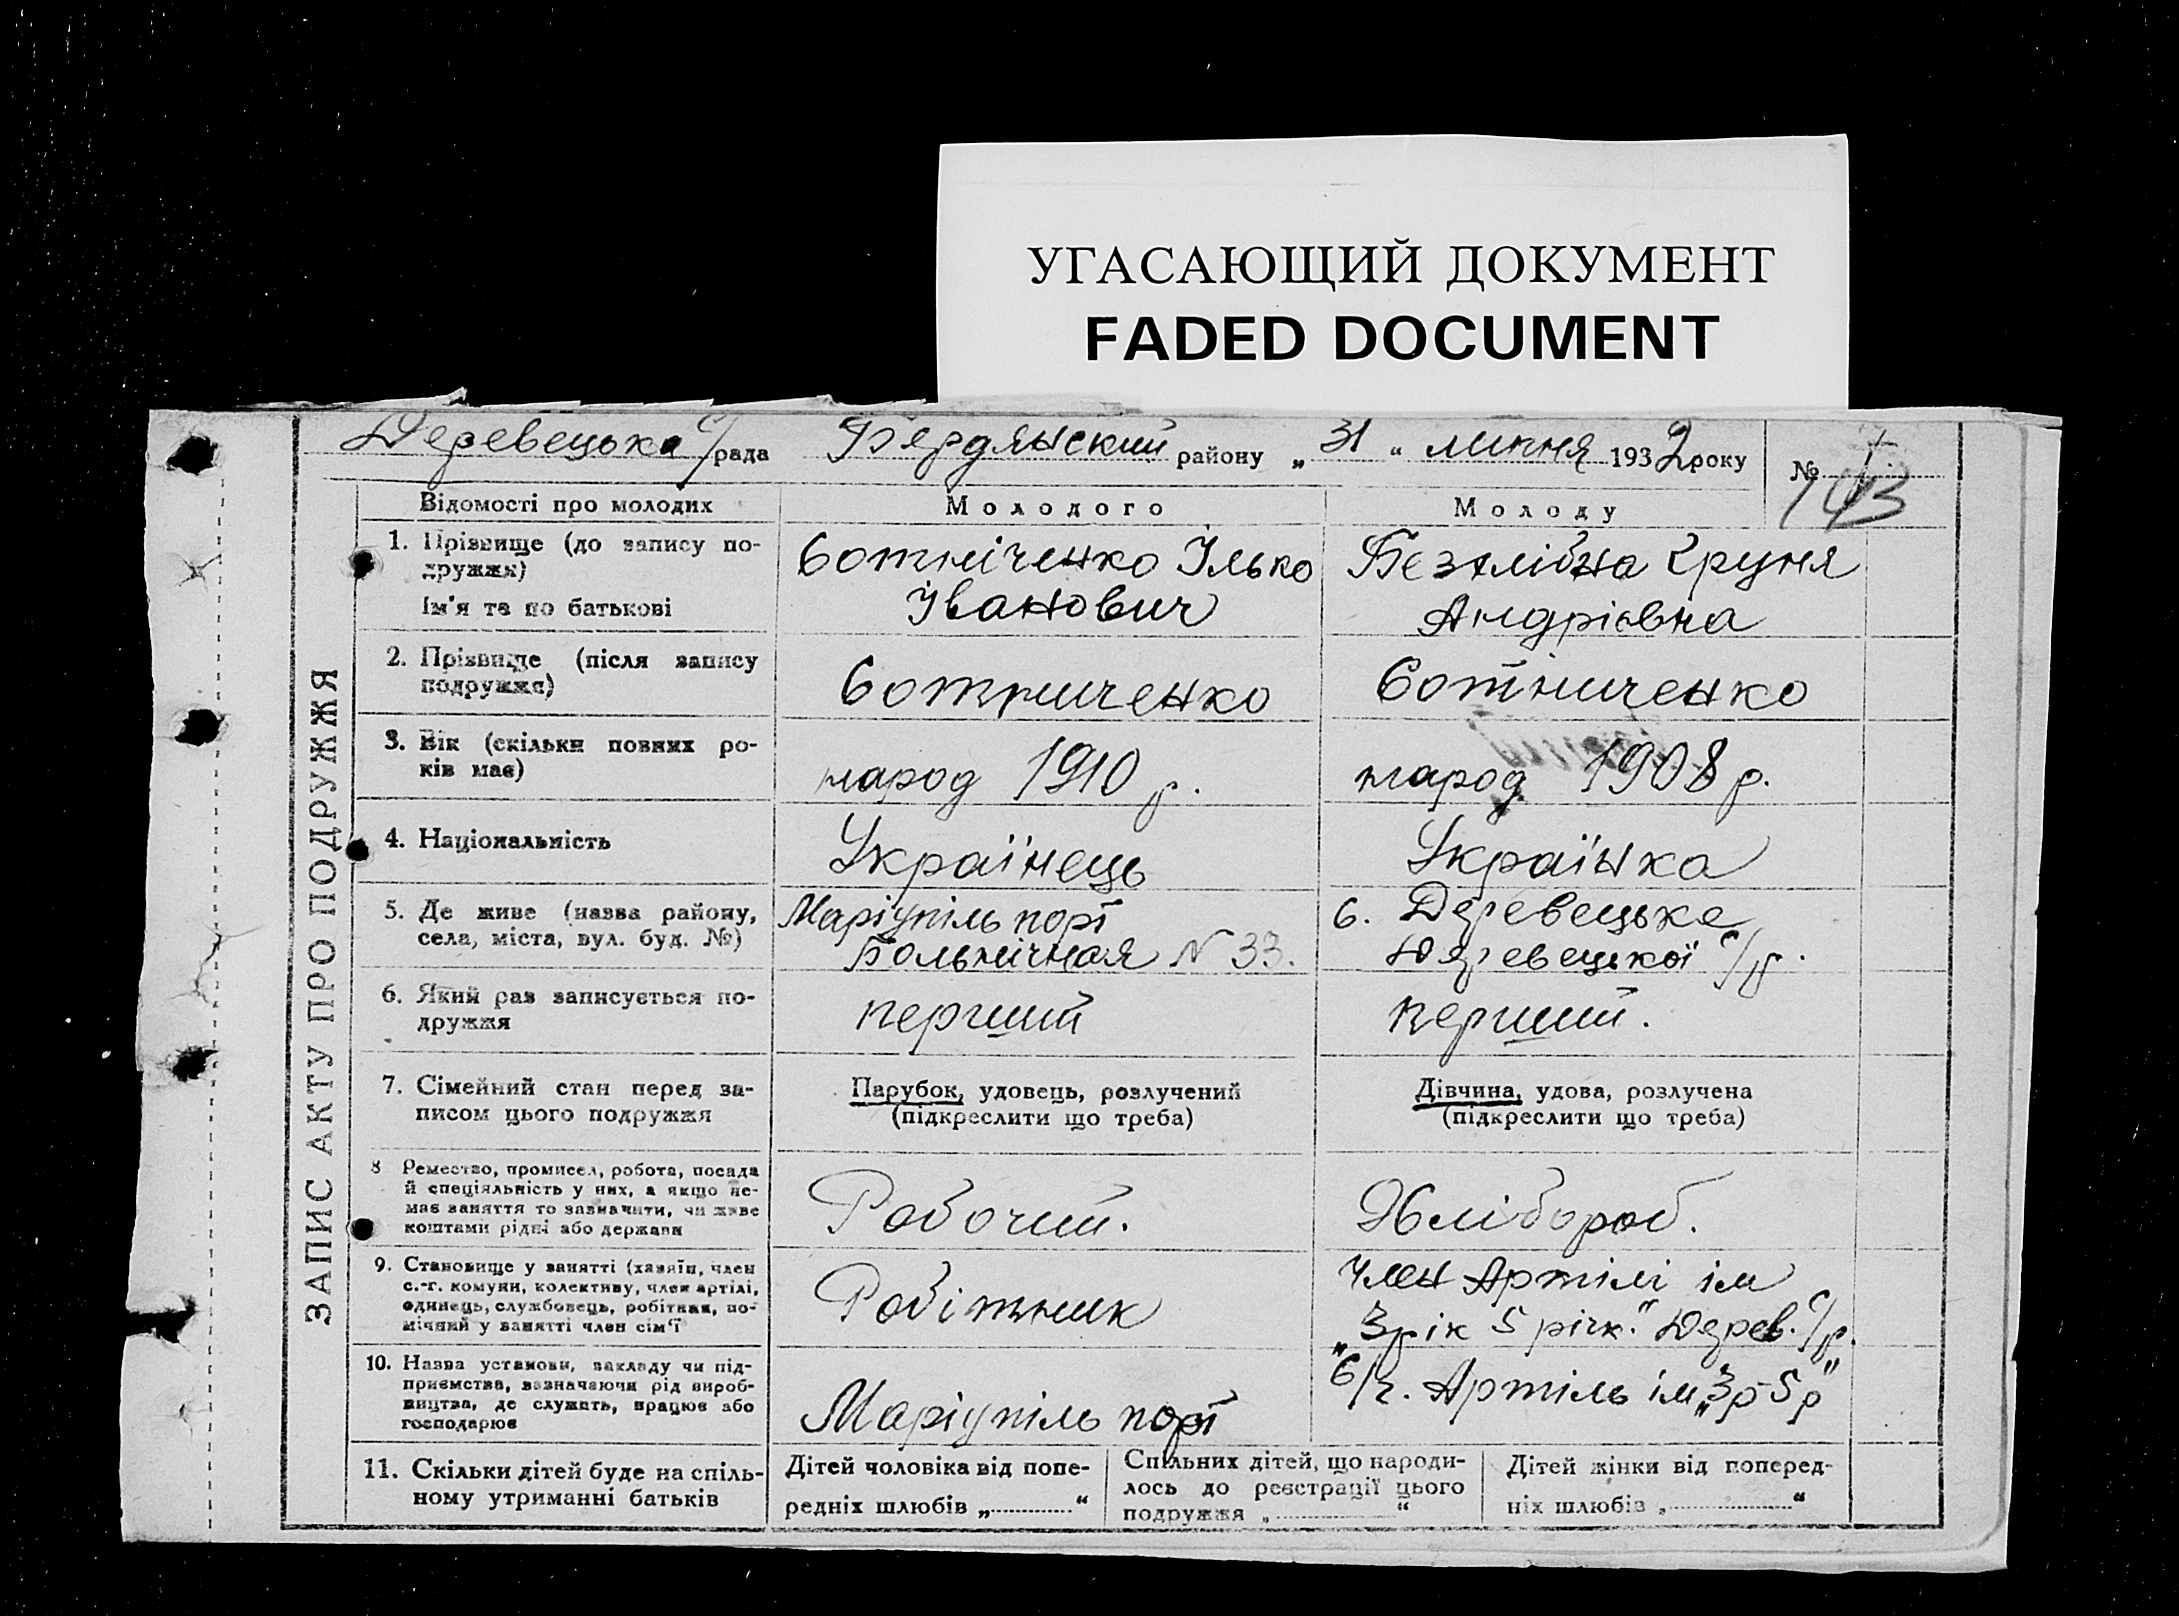 УГАСАЮЩИЙ ДОКУМЕНТ
FADED DOCUMENT
Деревецька с/рада Бердянський району „31“ липня 1932 року №
143
Відомості про молодих
Молодого
Молоду
ЗАПИС АКТУ ПРО ПОДРУЖЖЯ
1. Прізвище (до запису по-
дружжя)
Ім'я та по батькові
Сотніченко Ілько
Іванович
Безхлібна Груня
Андріевна
2. Прізвище (після запису
подружжя)
Сотниченко
Сотниченко
3. Вік (скільки повних ро-
ків має)
народ 1910 р.
народ 1908 р.
4. Національність
Українець
Українка
5. Де живе (назва району,
села, міста, вул. буд. №)
Маріупіль порт
Больнічная N 33.
с. Деревецьке
Деревецької с/р.
6. Який раз записується по-
дружжя
перший
перший.
7. Сімейний стан перед за-
писом цього подружжя
Парубок, удовець, розлучений
(підкреслити що треба)
Дівчина, удова, розлучена
(підкреслити що треба)
8 Ремество, промисел, робота, посада
й спеціяльність у них, а якщо не-
має заняття то зазначити, чи живе
коштами рідні або держави
Робочий.
Хлібороб.
9. Становище у занятті (хазяїн, член
с.-г. комуни, колективу, член артілі,
одинець, службовець, робітник, по-
мічний у занятті член сім'ї
Робітник
Член Артілі ім
„3 рік 5 річк.“ Дерев. с/р.
10. Назва установи, закладу чи під-
приємства, зазначаючи рід вироб-
ництва, де служать, працює або
господарює
Маріупіль порт
с/г. Артіль ім „3р-5р“
11. Скільки дітей буде на спіль-
ному утриманні батьків
Дітей чоловіка від попе-
редніх шлюбів „ “
Спільних дітей, що народи-
лось до реєстрації цього
подружжя „ “
Дітей жінки від поперед-
ніх шлюбів „ “